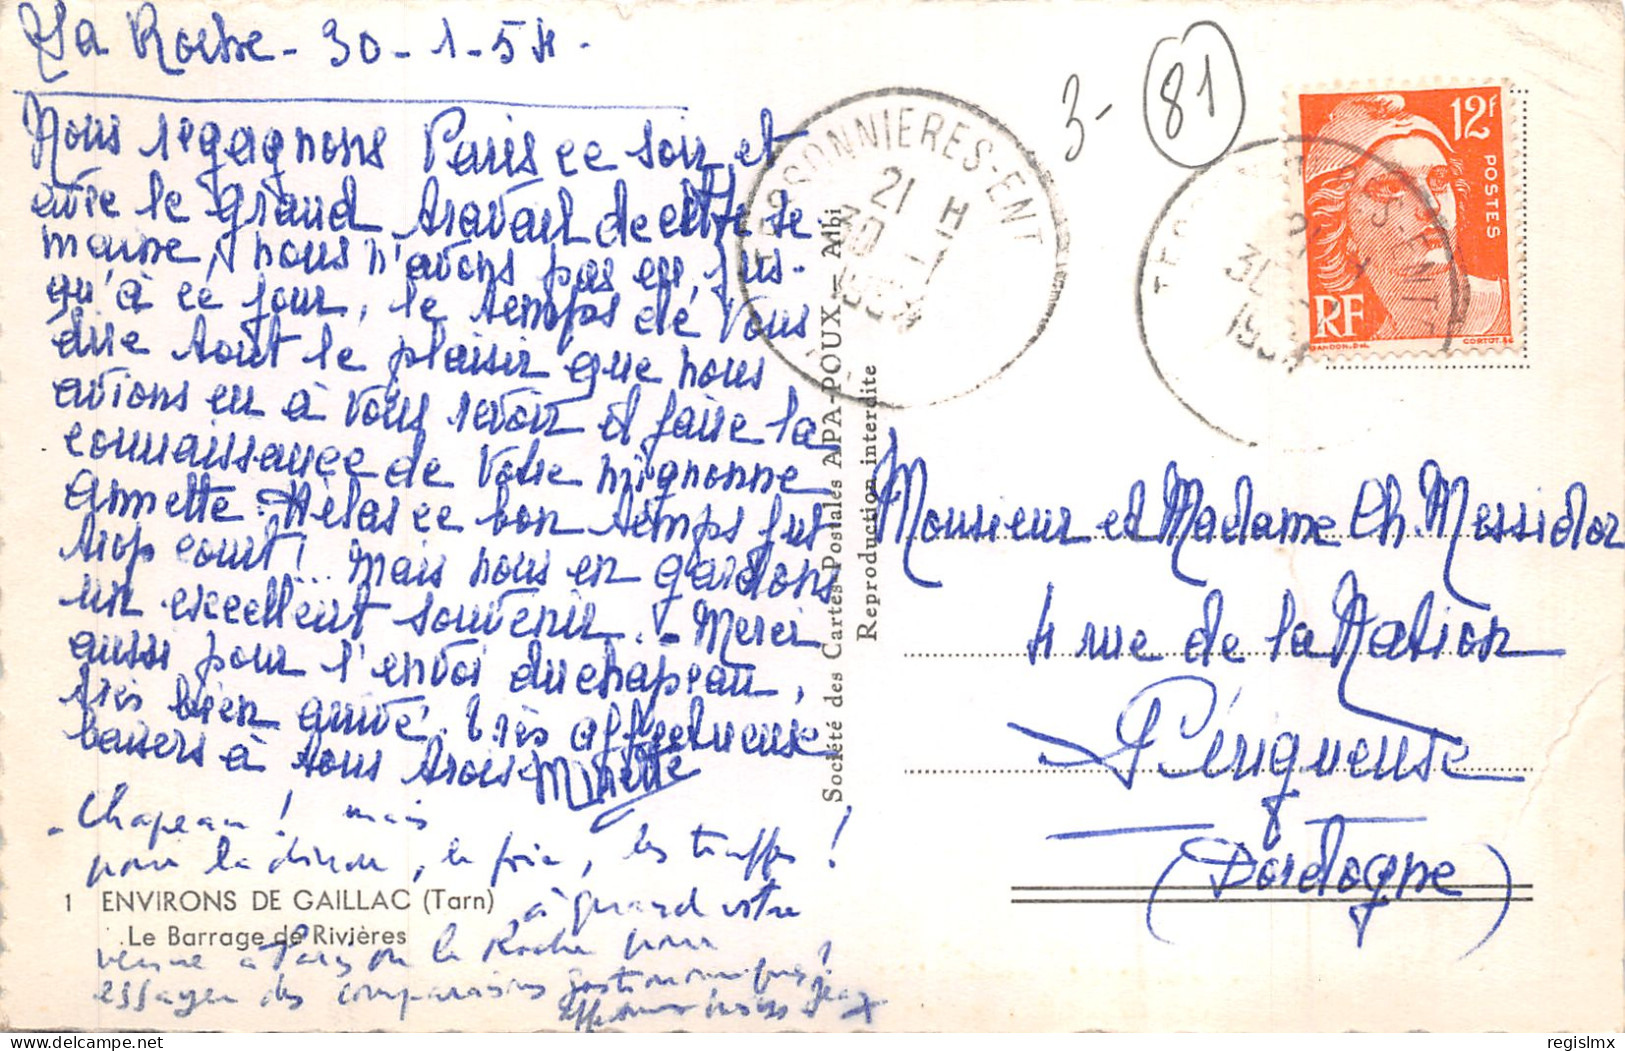 La Roche - 30 - 1 - 54 -
Nous regagnons Paris ce soir et
avec le grand travail de cette se
maine, nous n'avons pas eu, jus-
qu'à ce jour, le temps de vous
dire tout le plaisir que nous
avions eu à vous revoir et faire la
connaissance de votre mignonne
Annette. Hélas ce bon temps fut
trop court! ... Mais nous en gardons
un excellent souvenir. - Merci
aussi pour l'envoi du chapeau,
très bien arrivé. Très affectueux
baisers à tous trois. Minette
- Chapeau ! mais
pour la dinde, le foie, les truffes !
à quand votre
venue à Paris ou la Roche pour
essayer des comparaisons gastronomiques !
Jean
1 ENVIRONS DE GAILLAC (Tarn)
Le Barrage de Rivières
Société des Cartes Postales APA-POUX — Albi
Reproduction interdite
SONNIERES-ENT
21 H
30 - 1
1954
3 - 81
12F
POSTES
RF
GANDON.DEL
CORTOT.SC
30
195
Monsieur et Madame Ch. Messidor
4 rue de la Nation
Périgueux
(Dordogne)
regislmx
delcampe.net